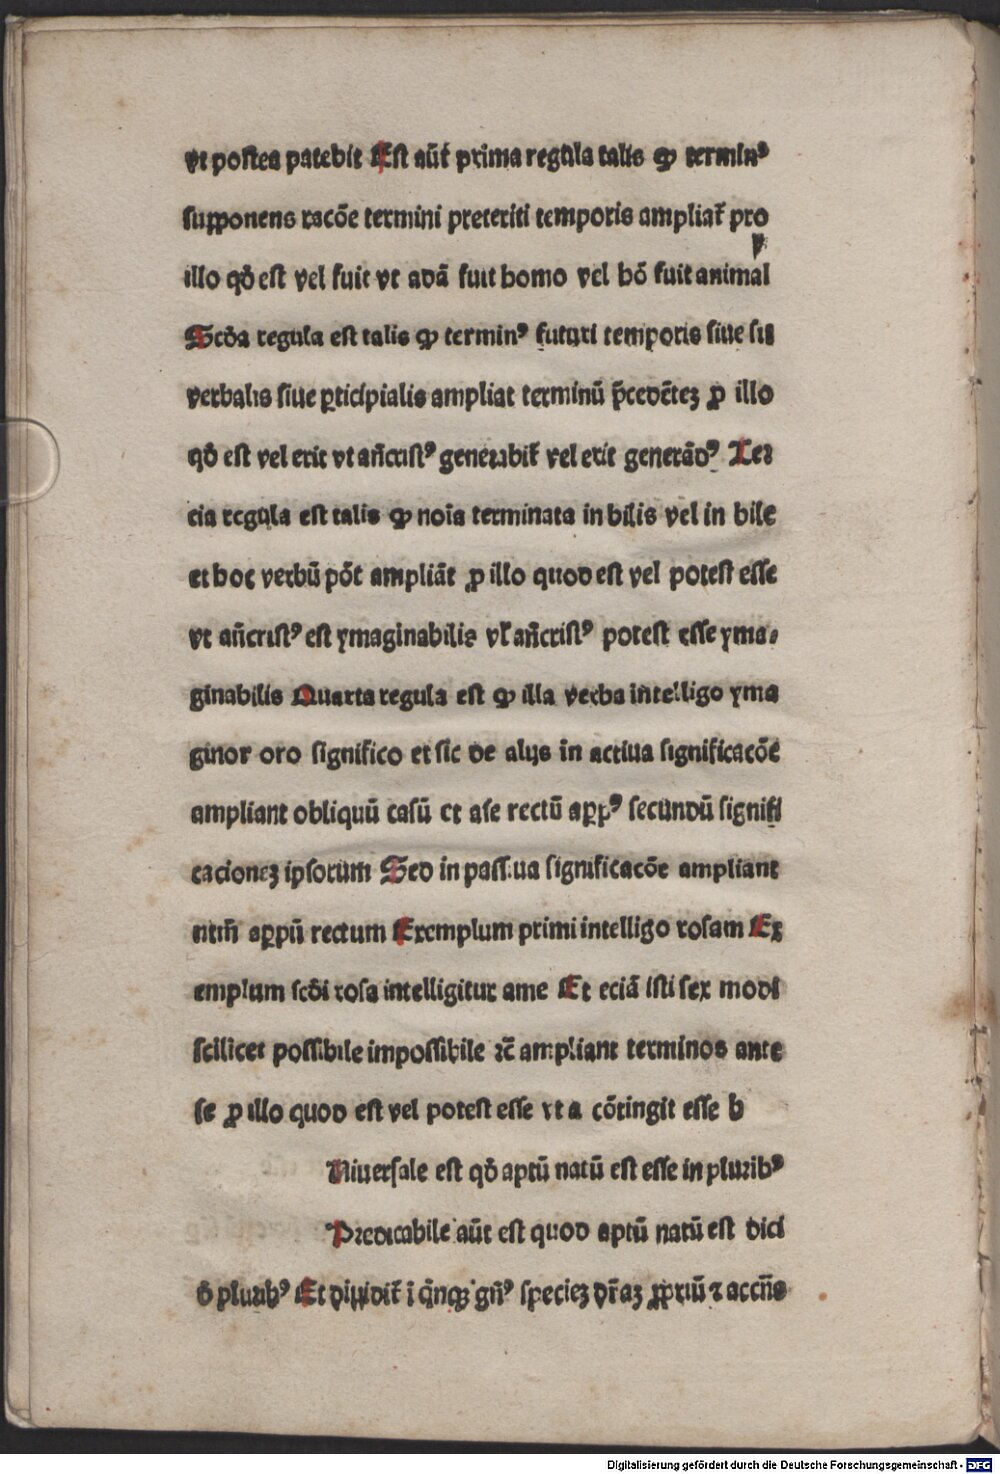 vt postea patebit Est aūt̄ prima regula talis ꝙ terminꝰ
supponens racōe termini preteriti temporis ampliat̄ pro
illo qd̄ est vel fuit vt adā fuit homo vel hō fuit animal
Scd̄a regula est talis ꝙ terminꝰ futuri temporis siue sit
verbalis siue ꝑticipialis ampliat terminū p̄cedētez ꝓ illo
qd̄ est vel erit vt an̄cristꝰ generabit̄ vel erit generādꝰ Ter
cia regula est talis ꝙ noīa terminata in bilis vel in bile
et hoc verbū pōt ampliāt ꝓ illo quod est vel potest esse
vt an̄cristꝰ est ymaginabilis vl̄ an̄cristꝰ potest esse yma⸗
ginabilis Quarta regula est ꝙ illa verba intelligo yma
ginor oro significo et sic de alijs in actiua significacōe
ampliant obliquū casū et a se rectū aꝑpꝰ secundū signifi
cacionez ipsorum Sed in passiua significacōe ampliant
ntm̄ aꝑpū rectum Exemplum primi intelligo rosam Ex
emplum scd̄i rosa intelligitur a me Et eciā isti sex modi
scilicet possibile impossibile ⁊c̄ ampliant terminos ante
se ꝓ illo quod est vel potest esse vt a cōtingit esse b
Niuersale est qd̄ aptū natū est esse in pluribꝰ
Predicabile aūt est quod aptū natū est dici
d̄ pluribꝰ Et diuidit̄ ī q̄nqꝫ gn̄ꝰ speciez dr̄az ꝓpriū ⁊ accn̄s
Digitalisierung gefördert durch die Deutsche Forschungsgemeinschaft - DFG